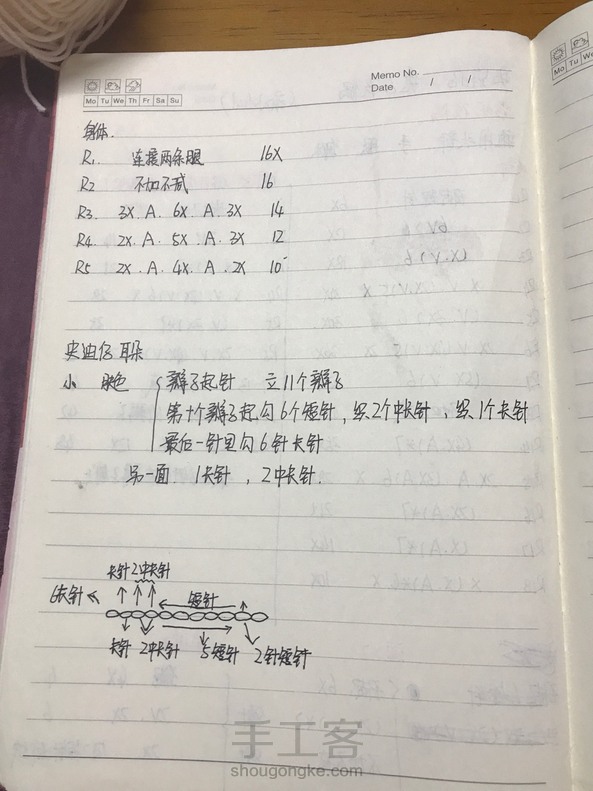 Memo No.
Date / /
Mo Tu We Th Fr Sa Su
Mo Tu We Th
身体.
R1. 连接两条腿 16X
R2 不加不减 16
R3. 3X. A. 6X. A. 3X 14
R4. 2X. A. 5X. A. 3X 12
R5 2X. A. 4X. A. 2X 10
史迪仔 耳朵
小 肤色 辫子起针 立11个辫子
第十个辫子起勾6个短针, 织2个中长针、织1个长针
最后一针里勾6针长针
另一面 1长针, 2中长针.
长针 2中长针
6长针 短针
长针 2中长针 5短针 2针短针
手工客
shougongke.com